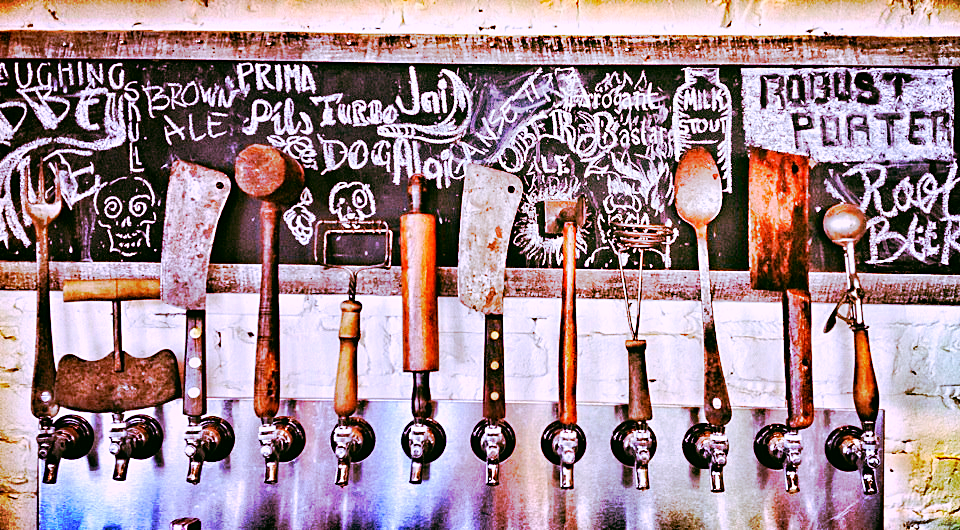 UGHING
SKULL
BROWN
ALE
PRIMA
Pils
TURBO
DOG
Jai
Alai
Arrogant
Bastard
ALE
MILK
STOUT
ROBUST
PORTER
Root
BEER